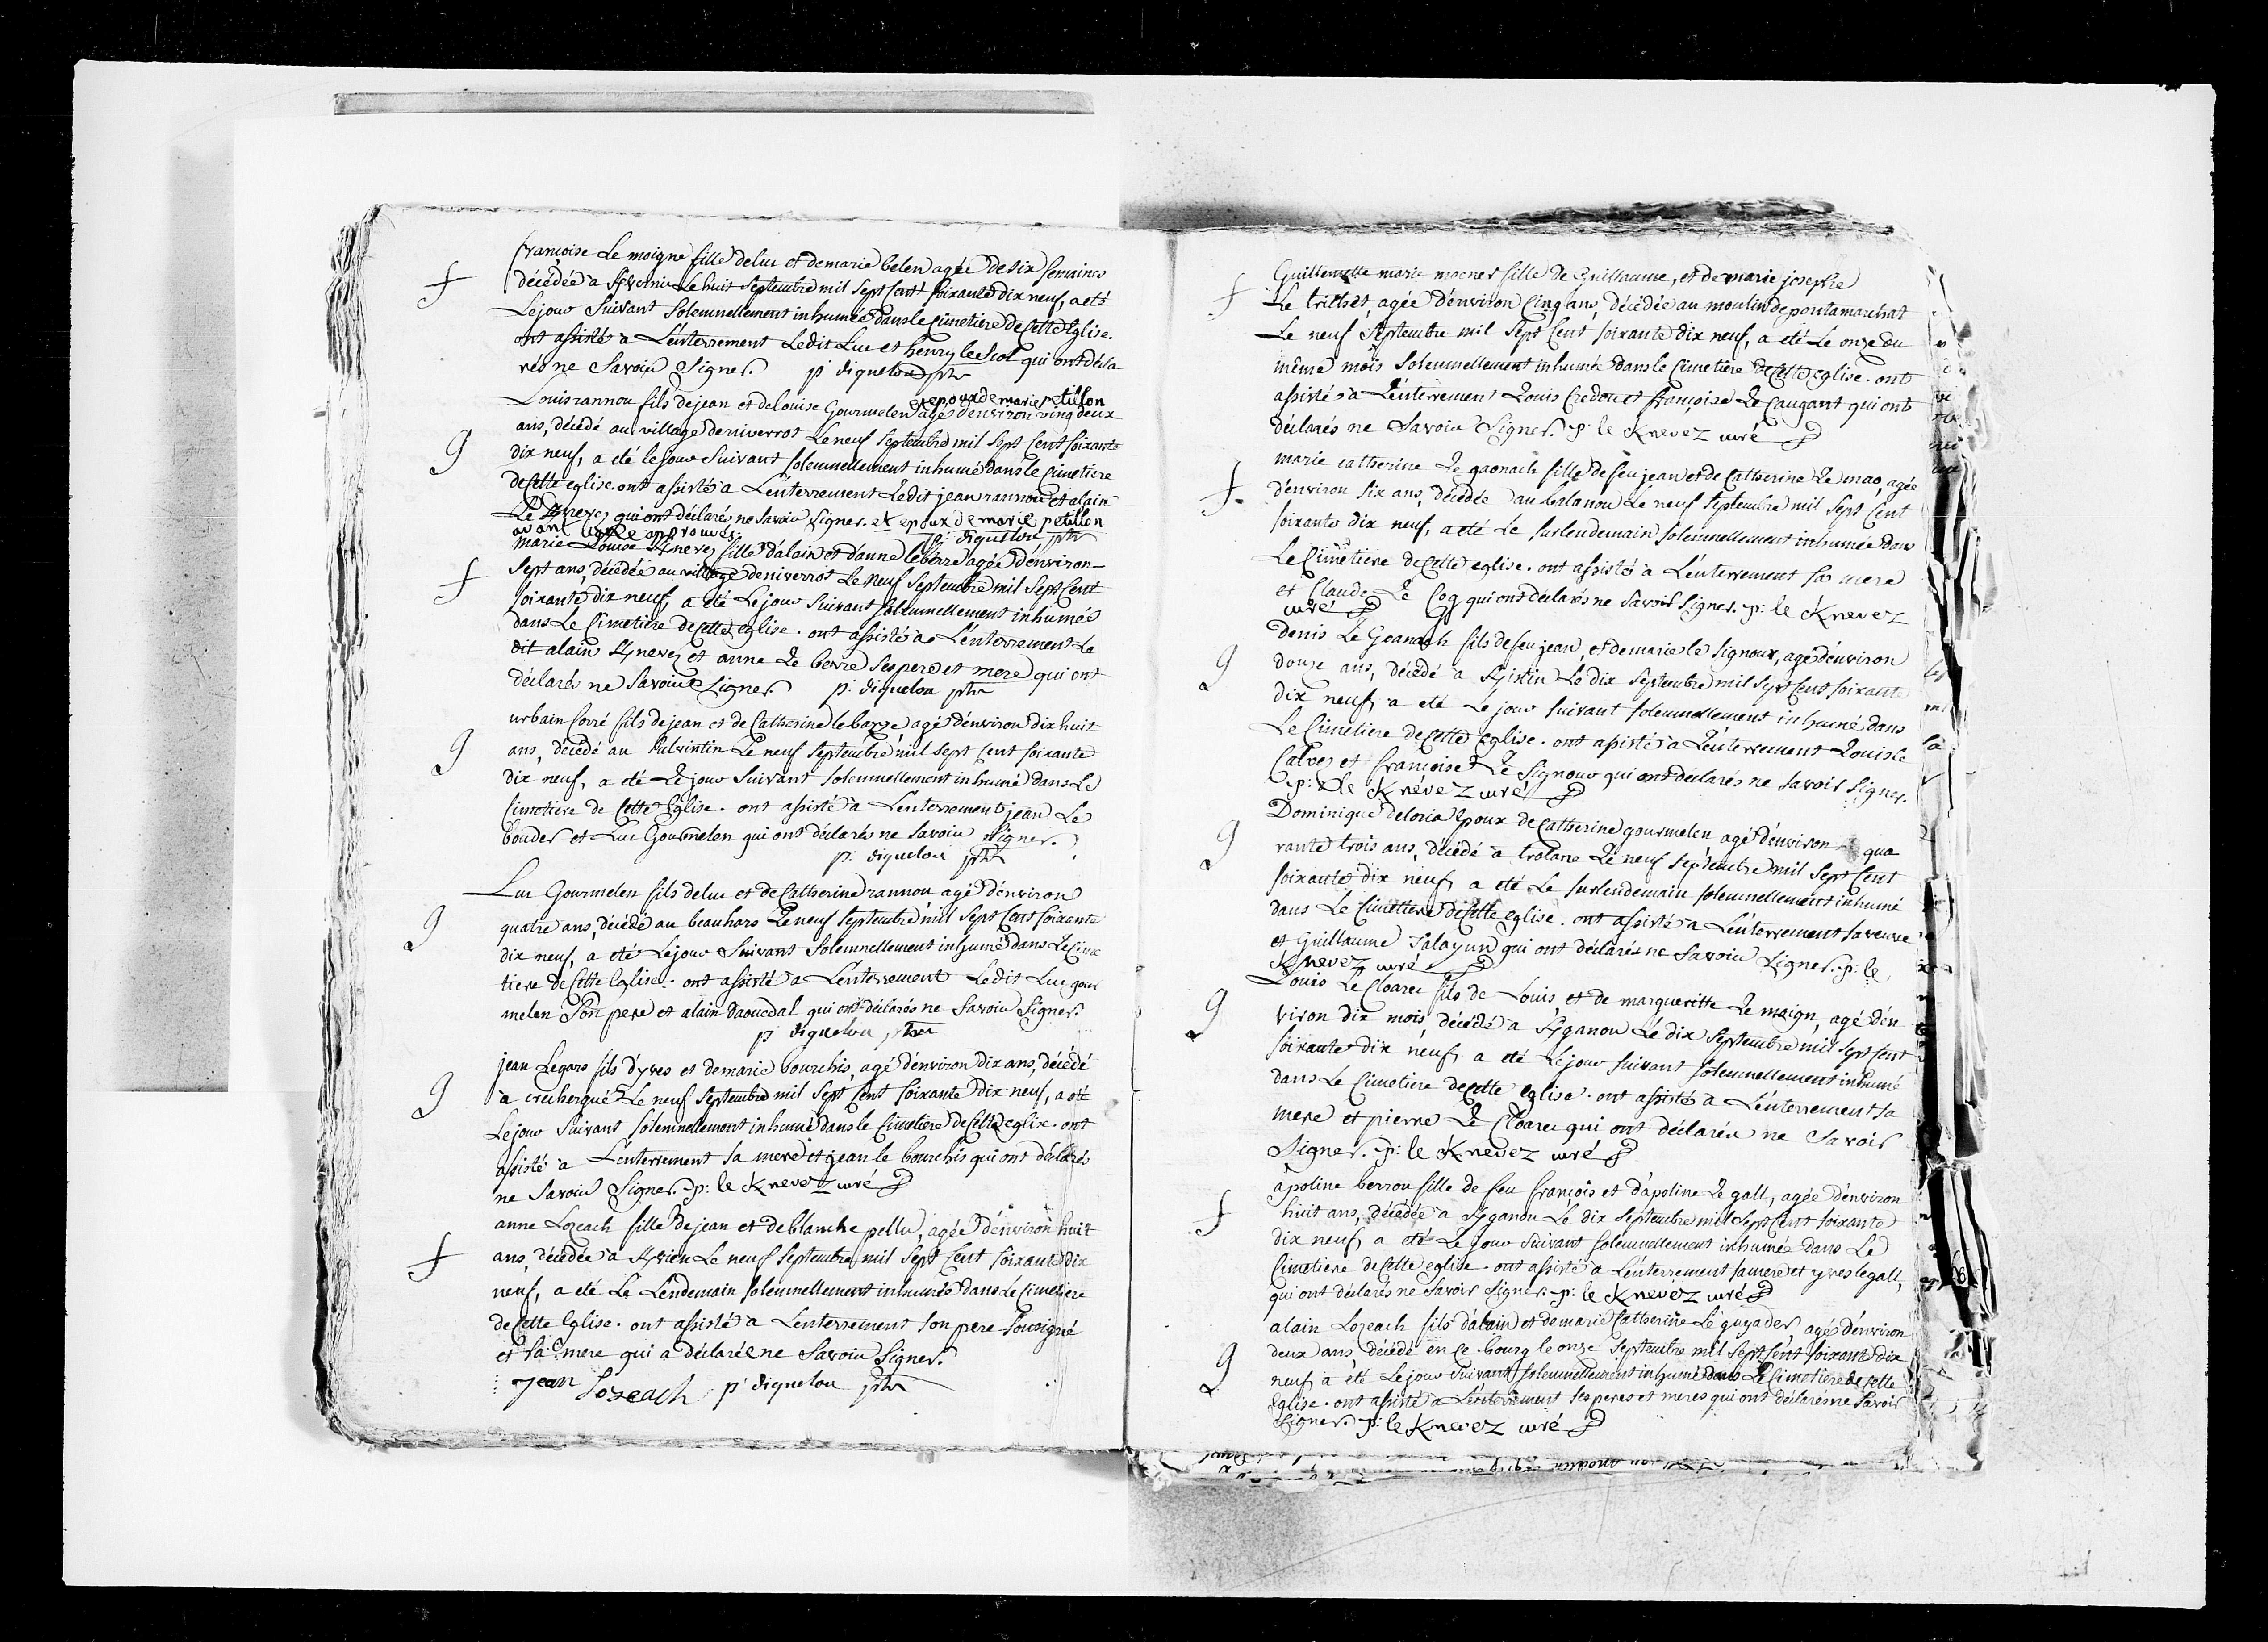 françoise Le moigne fille de luc et de marie belen agée de six semaines
f
décédée à Le huit Septembre mil Sept Cent Soixante dix neuf, a été
Le jour Suivant Solemnellement inhumée dans le Cimetiere de Cette Eglise.
ont assisté à L'enterrement Ledit Luc et henry le Scol qui ont décla-
rés ne Savoir Signer. p diquelou ptre
et epoux de marie petillon
Louis rannou fils de jean et de louise Gourmelen agé d'environ vingt deux
ans, décédé au village de niverrot Le neuf Septembre mil Sept Cent Soixante
g
dix neuf, a été le jour Suivant Solemnellement inhumé dans le Cimetiere
de Cette eglise. ont assisté a L'enterrement Ledit jean rannou et alain
Le Knevez qui ont déclarés ne Savoir Signer. et epoux de marie petillon
avant approuvé. p: diquelou ptre
marie Louise Knevez fille d'alain et d'anne le berre agée d'environ
Sept ans, décédée au village de niverrot Le neuf Septembre mil Sept Cent
f
Soixante dix neuf, a été Le jour Suivant Solemnellement inhumée
dans Le Cimetiere de Cette eglise. ont assisté a L'enterrement Le
dit alain Knevez et anne Le berre Ses pere et mere qui ont
déclarés ne Savoir Signer. p: diquelou ptre
urbain Corré fils de jean et de Catherine le barze agé d'environ dix huit
g
ans, décédé au Le neuf Septembre mil Sept Cent Soixante
dix neuf, a été Le jour Suivant Solemnellement inhumé dans Le
Cimetiere de Cette Eglise. ont assisté a L'enterrement jean Le
bouder et Luc Gourmelen qui ont déclarés ne Savoir Signer.
p: diquelou ptre
Luc Gourmelen fils de luc et de Catherine rannou agé d'environ
g
quatre ans, décédé au beauhars Le neuf Septembre mil Sept Cent Soixante
dix neuf, a été Le jour Suivant Solemnellement inhumé dans Le Cime
tiere de Cette Eglise. ont assisté a L'enterrement Ledit Luc gour
melen Son pere et alain daoucdal qui ont déclarés ne Savoir Signer.
p diquelou ptre
jean Legars fils d'yves et de marie bourchis, agé d'environ dix ans, décédé
g
à crecherqué Le neuf Septembre mil Sept Cent Soixante dix neuf, a été
Le jour Suivant Solemnellement inhumé dans le Cimetiere de Cette eglise. ont
assisté a L'enterrement Sa mere et jean le bourchis qui ont déclarés
ne Savoir Signer. p: le Knevez curé
anne Lozeach fille de jean et de blanche pellu, agée d'environ huit
f
ans, décédée à Le neuf Septembre mil Sept Cent Soixante dix
neuf, a été Le Lendemain Solemnellement inhumée dans Le Cimetiere
de Cette Eglise. ont assisté a L'enterrement Son pere Sousigné
et Sa mere qui a déclaré ne Savoir Signer.
jean Lozeach p: diquelou ptre
Guillemette marie mocner fille de Guillaume, et de marie josephe
f
Le agée d'environ Cinq ans, décédée au moulin de pontamarchat
Le neuf Septembre mil Sept Cent Soixante dix neuf, a été Le onze du
même mois Solemnellement inhumée dans le Cimetiere de Cette eglise. ont
assistés a L'enterrement Louis Credou et françoise Le Caugant qui ont
déclarés ne Savoir Signer. p: le Knevez curé
marie catherine Le gaonach fille de feu jean et de Catherine Le mao, agée
f
d'environ Six ans, décédée au Le neuf Septembre mil Sept Cent
Soixante dix neuf, a été Le Surlendemain Solemnellement inhumée dans
Le Cimetiere de Cette eglise. ont assisté a L'enterrement Sa mere
et Claude Le Coq qui ont déclarés ne Savoir Signer. p: le Knevez
curé
denis Le Goanach fils de feu jean, et de marie le Signour, agé d'environ
g
douze ans, décédé a Le dix Septembre mil Sept Cent Soixante
dix neuf, a été Le jour Suivant Solemnellement inhumé dans
Le Cimetiere de Cette Eglise. ont assisté a L'enterrement Louis Le
Calvez et françoise Le Signour qui ont déclarés ne Savoir Signer.
p: le Knévez curé
Dominique deloria Epoux de Catherine gourmelen, agé d'environ qua
g
rante trois ans, décédé a trolane Le neuf Septembre mil Sept Cent
Soixante dix neuf, a été Le Surlendemain Solemnellement inhumé
dans Le Cimetiere de Cette eglise. ont assisté a L'enterrement Sa veuve
et Guillaume Salayun qui ont déclarés ne Savoir Signer. p: le
Knevez curé
Louis Le Cloarec fils de Louis, et de margueritte Le moign, agé d'en
g
viron dix mois, décédé a Kganou Le dix Septembre mil Sept Cent
Soixante dix neuf, a été Le jour Suivant Solemnellement inhumé
dans Le Cimetiere de Cette eglise. ont assisté a L'enterrement Sa
mere et pierre Le Cloarec qui ont déclarés ne Savoir
Signer. p: le Knevez curé
apoline berrou fille de feu françois et d'apoline Le gall, agée d'environ
f
huit ans, décédée a Kganou Le dix Septembre mil Sept Cent Soixante
dix neuf, a été Le jour Suivant Solemnellement inhumée dans Le
Cimetiere de Cette eglise. ont assisté a L'enterrement Sa mere et yves le gall,
qui ont déclarés ne Savoir Signer. p: le Knevez curé
alain Lozeach fils d'alain et de marie Catherine Le guyader, agé d'environ
g
deux ans, décédé en ce bourg le onze Septembre mil Sept Cent Soixante dix
neuf, a été Le jour Suivant Solemnellement inhumé dans Le Cimetiere de Cette
Eglise. ont assisté a L'enterrement Ses peres et meres qui ont déclarés ne Savoir
Signer. p: le Knevez curé